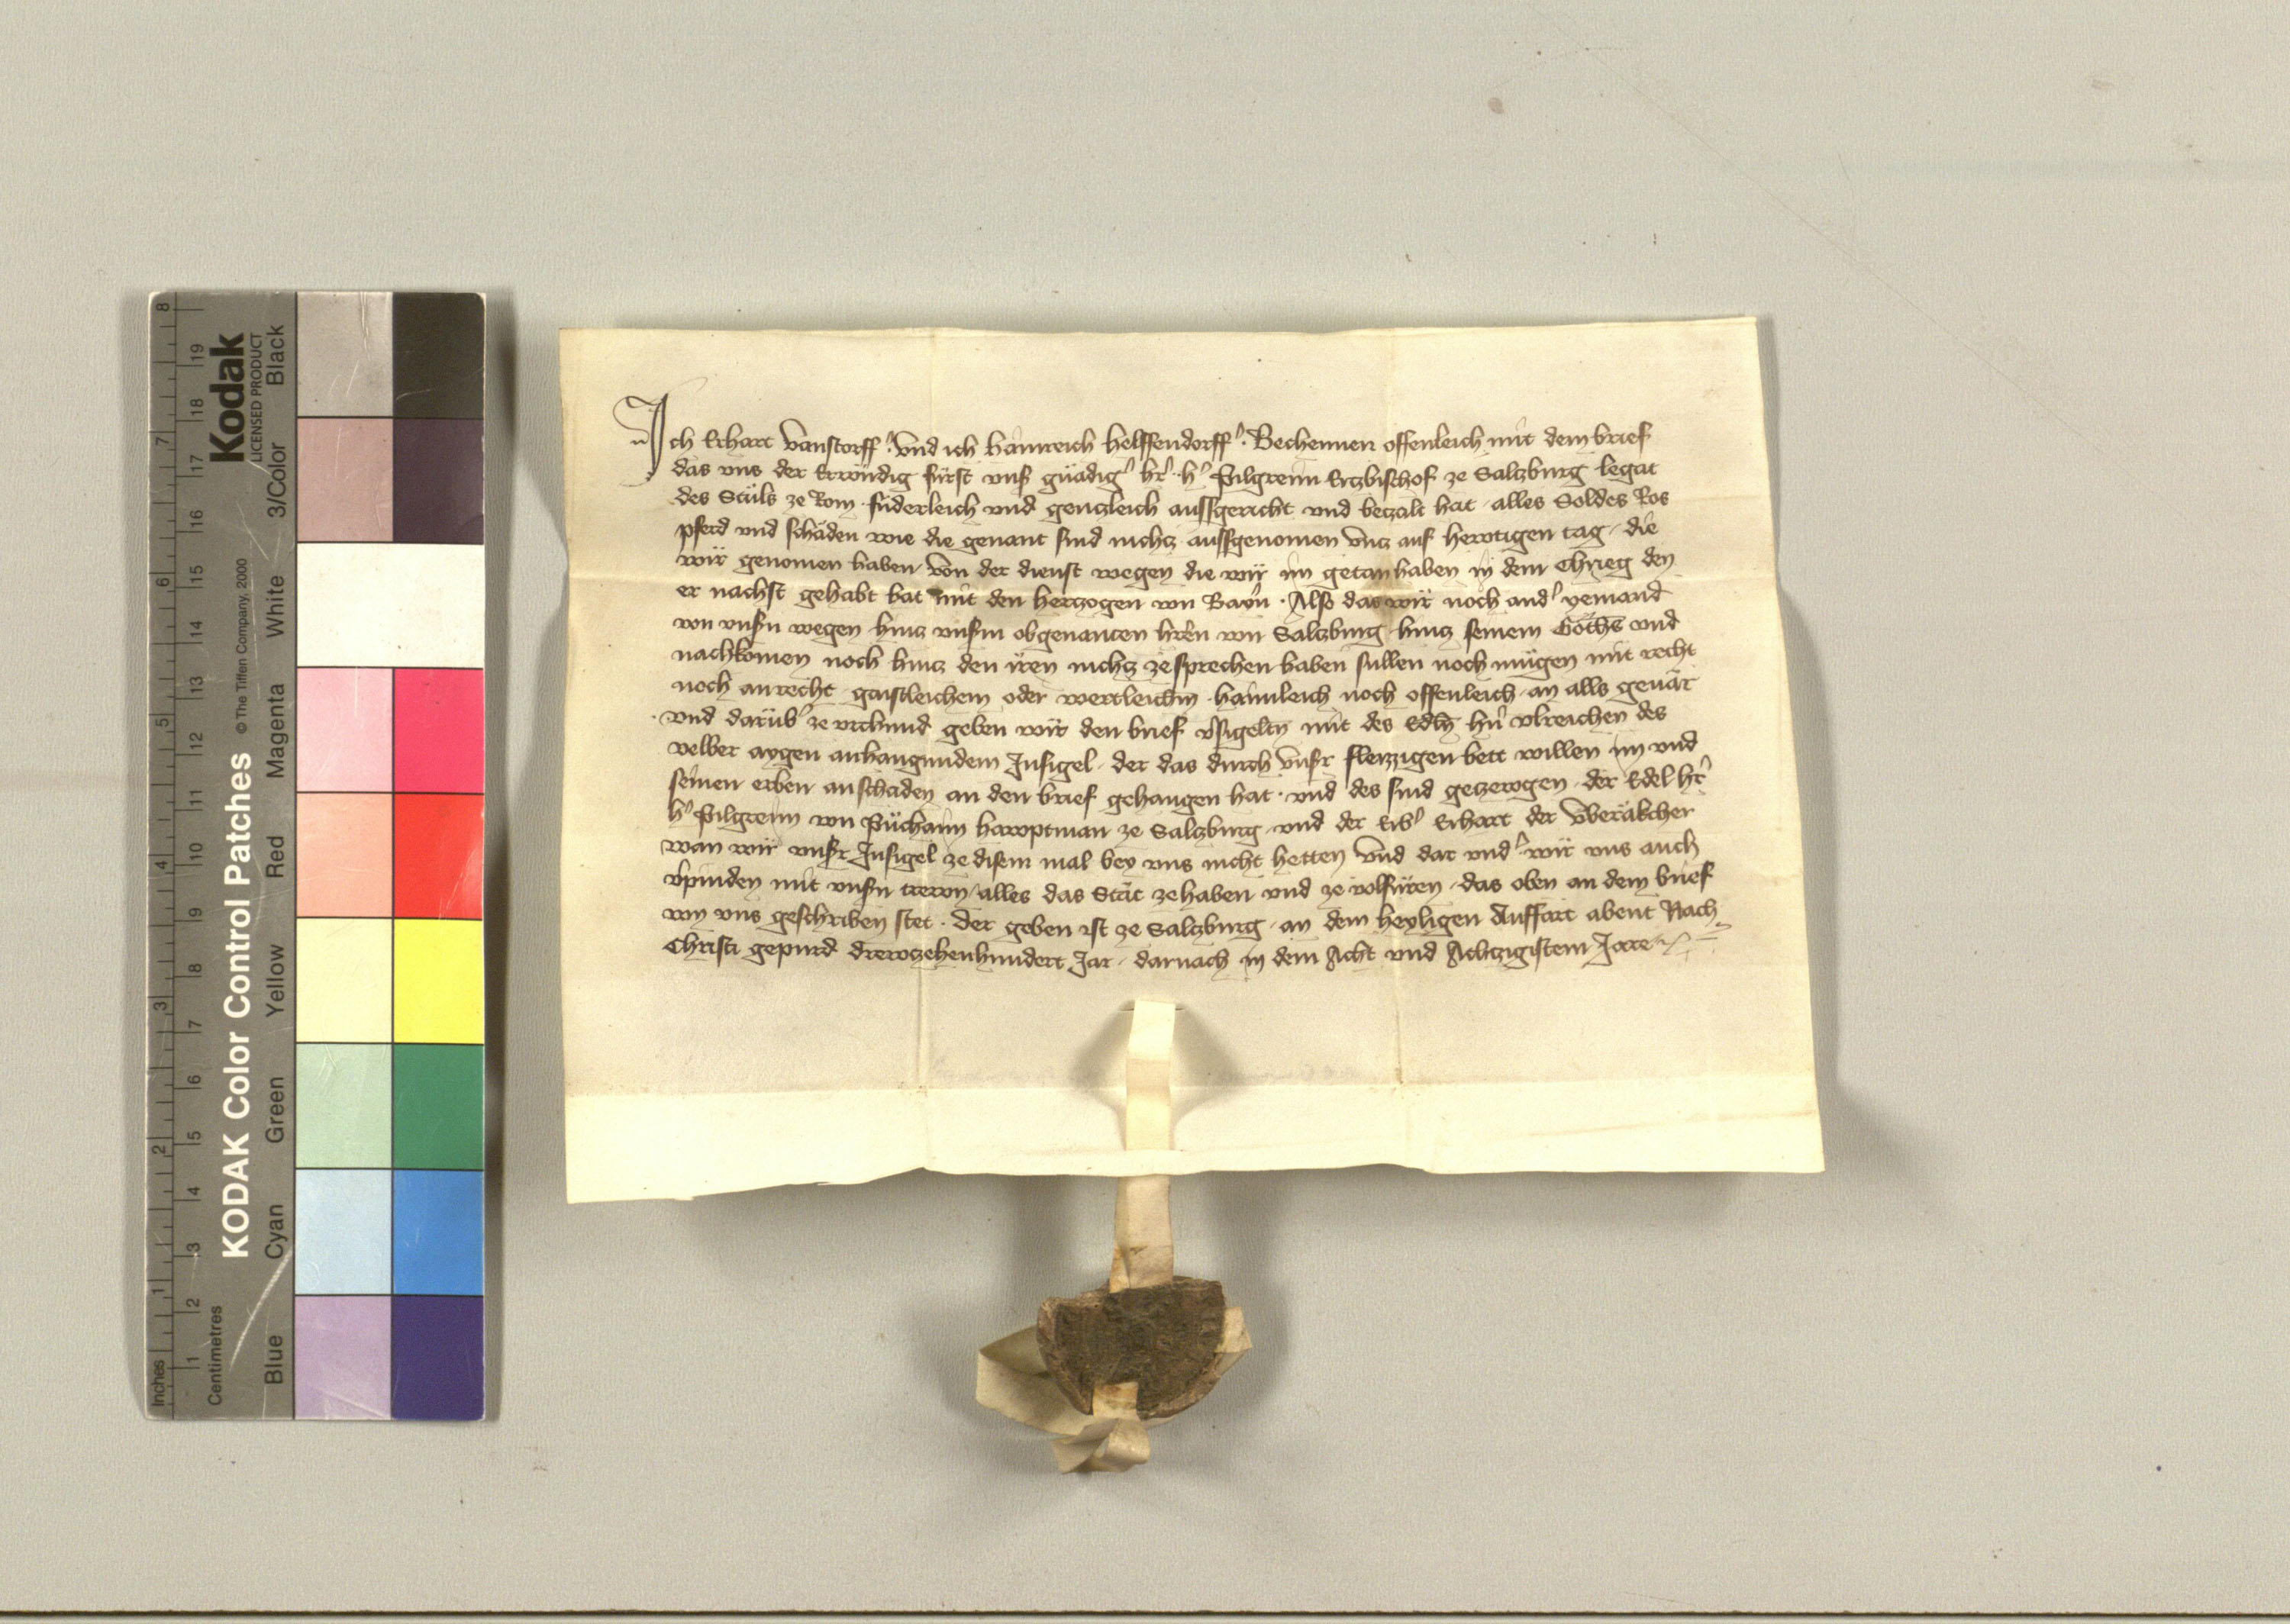 Ich Erhart vanstorff' und ich hainreich helffendorff'. Bechennen offenleich mit dem brief
das uns der Erwirdig fürst uns' gnädig' h'r h' Pilgreim Ertzbischof ze Salzburg legat
des Stůls ze Rom fuderleich und gentzleich aussgericht und betzalt hat alles Soldes Ros
pferd und schäden wie die genant sind nichtz aussgenomen untz auf hewtigen tag die
wir genomen haben von der dienst wegen die wir im getan haben in dem Chrieg den
er nachst gehabt hat mit den hertzogen von Bayrn. Also das wir noch and' yemand
von unsn wegen hintz unsm obgenanten h'ren von Salzburg hintz seinem Gotzhs und
nachkomen noch hintz den iren nichtz ze sprechen haben sullen noch mügen mit recht
noch an recht gaistleichem oder werltleichm haimleich noch offenleich an alls gevär
und darüb' ze urkund geben wir den brief v'sigelten mit des Edln h'n Ulreichen des
velber aygen anhangundem Insigel der das durch unsr fleizzigen bett willen im und
seinen erben an schaden an den brief gehangen hat. und des sind getzewgen der Edel h'r
h' Pilgreim von Püchaim hawptman ze Salzburg und der Erb' Erhart der Uberäkcher
wan wir unsr Insigel ze disem mal bey uns nicht hetten Und dar und' wir uns auch
v'pinden mit unsn trewn alles das Stät ze haben und ze volfüren das oben an dem brief
von uns geschriben stet. der geben ist ze Salzburg an dem heyligen Auffart abent Nach
Christi gepurd drewtzehenhundert Jar darnach in dem Acht und Achtzigistem Jare
KODAK Color Control Patches
© The Tiffen Company, 2000
Kodak
LICENSED PRODUCT
Centimetres
Inches
Blue Cyan Green Yellow Red Magenta White 3/Color Black
1 2 3 4 5 6 7 8 9 10 11 12 13 14 15 16 17 18 19
1 2 3 4 5 6 7 8